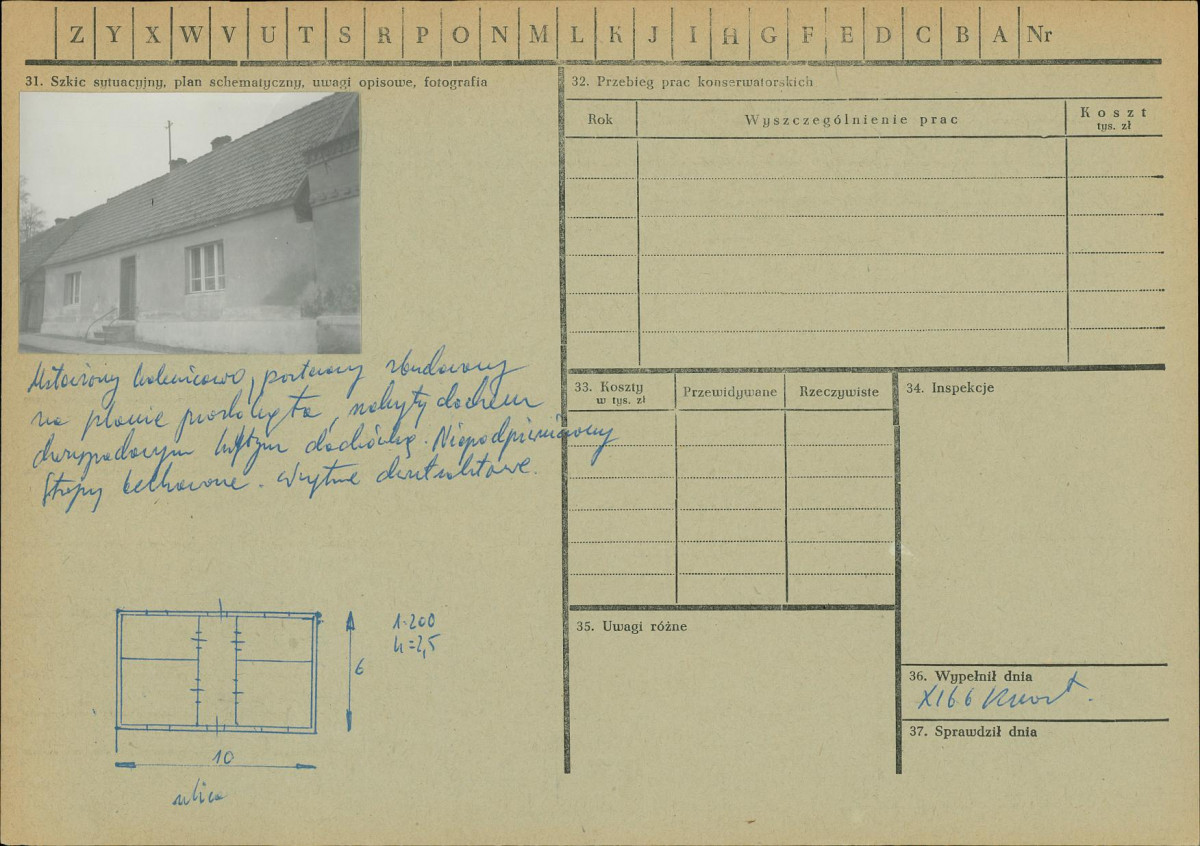 Z Y X W V U T S R P O N M L K J I H G F E D C B A Nr
31. Szkic sytuacyjny, plan schematyczny, uwagi opisowe, fotografia
Ustawiony kalenicowo, parterowy zbudowany
na planie prostokąta, nakryty dachem
dwuspadowym krytym dachówką. Niepodpiwniczony
Stropy belkowane. Wnętrze dwutraktowe.
1:200
h=2,5
6
10
ulica
32. Przebieg prac konserwatorskich
Rok
Wyszczególnienie prac
Koszt
tys. zł
33. Koszty
w tys. zł
Przewidywane
Rzeczywiste
34. Inspekcje
35. Uwagi różne
36. Wypełnił dnia
XI 66
37. Sprawdził dnia